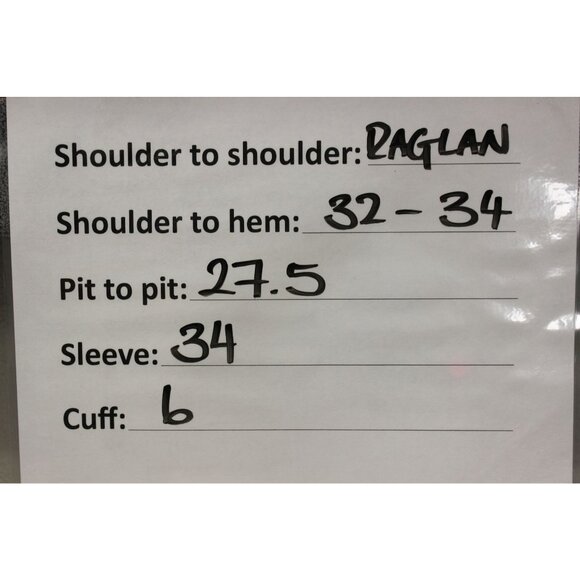 Shoulder to shoulder: RAGLAN
Shoulder to hem: 32 - 34
Pit to pit: 27.5
Sleeve: 34
Cuff: 6